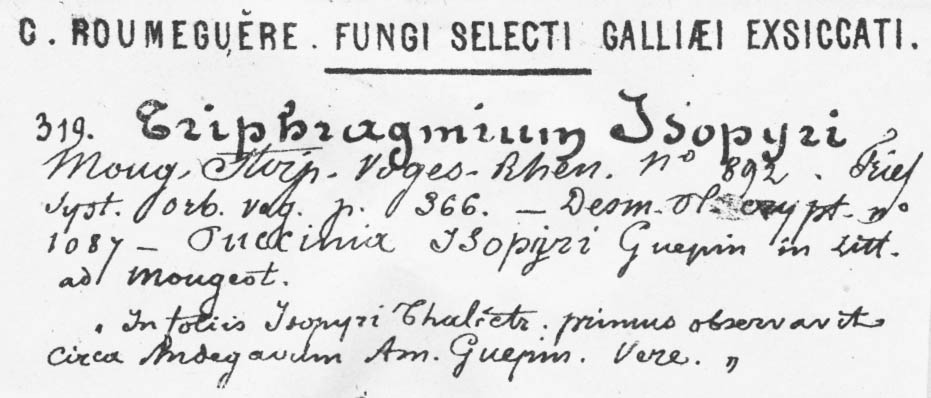 C. ROUMEGUÈRE. FUNGI SELECTI GALLIÆI EXSICCATI.
319. Triphragmium Isopyri
Moug. Stirp. Voges. Rhen. nº 892. Fries
Syst. Orb. veg. p. 366. — Desm. Pl. crypt. nº
1087 — Puccinia Isopyri Guepin in litt.
ad Mougeot.
"In foliis Isopyri Thalictr. primus observavit
circa Andegavum Am. Guepin. Vere."